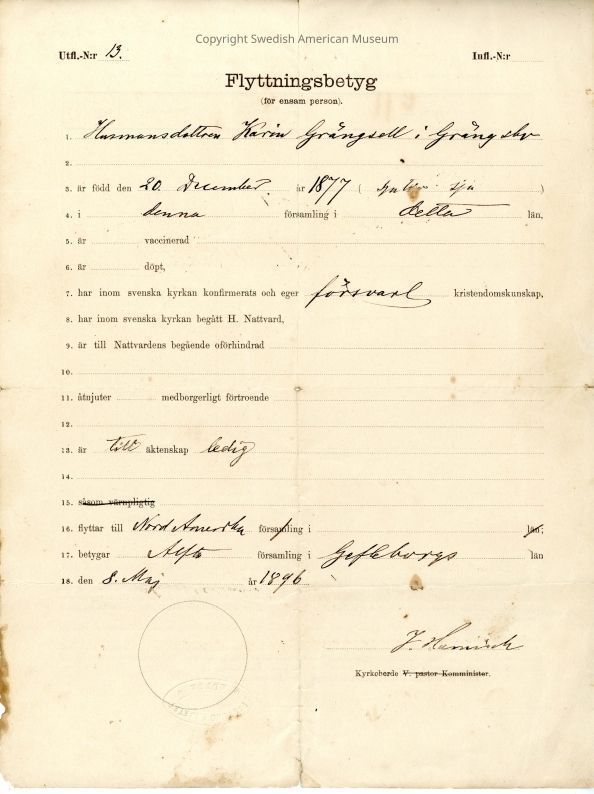 Copyright Swedish American Museum
Utfl.-N:r 13. Infl.-N:r
Flyttningsbetyg
(för ensam person).
1. Husmansdottren Karin Grängsell i Grängsbo
2.
3. är född den 20 December år 1877 ( sju sju )
4. i denna församling i detta län,
5. är vaccinerad
6. är döpt,
7. har inom svenska kyrkan konfirmerats och eger försvarl kristendomskunskap,
8. har inom svenska kyrkan begått H. Nattvard,
9. är till Nattvardens begående oförhindrad
10.
11. åtnjuter medborgerligt förtroende
12.
13. är till äktenskap ledig
14.
15. såsom värnpligtig
16. flyttar till Nord Amerika församling i län;
17. betygar Alfta församling i Gefleborgs län
18. den 8. Maj år 1896
Kyrkoherde V. pastor Komminister.